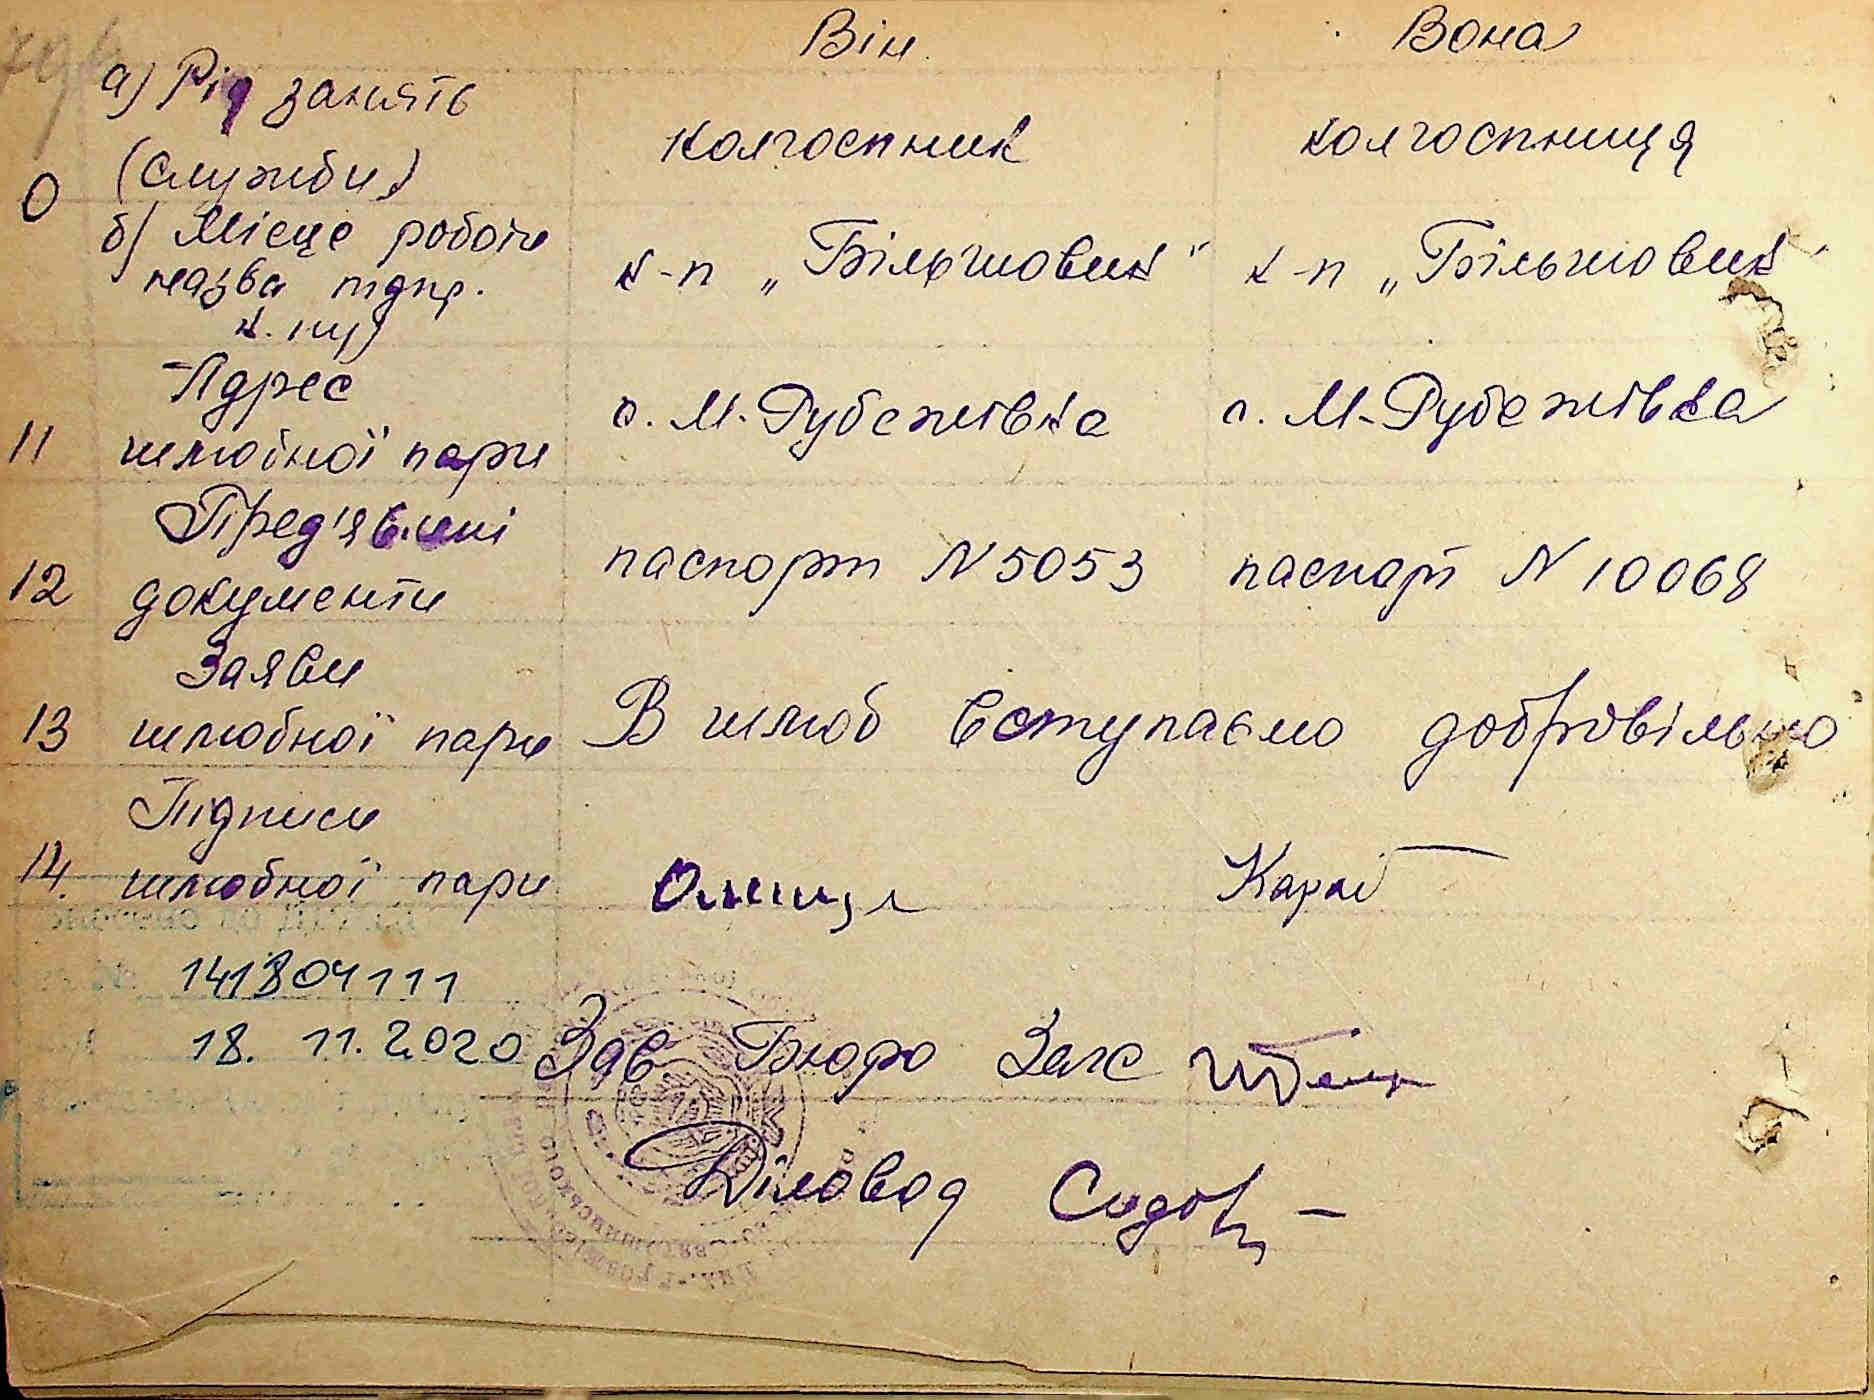 Він Вона
а) Рід занять
(служби) колгоспник колгоспниця
0
б) Місце роботи
назва підпр. к-п „Більшовик" к-п „Більшовик"
Адрес
11 шлюбної пари с. М-Рубежівка с. М-Рубежівка
Пред'явлені
12 документи паспорт N 5053 паспорт N 10068
Заяви
13 шлюбної пари В шлюб вступаємо добровільно
Підписи
14. шлюбної пари
18. 11. 2020 Зав Бюро Загс
Діловод